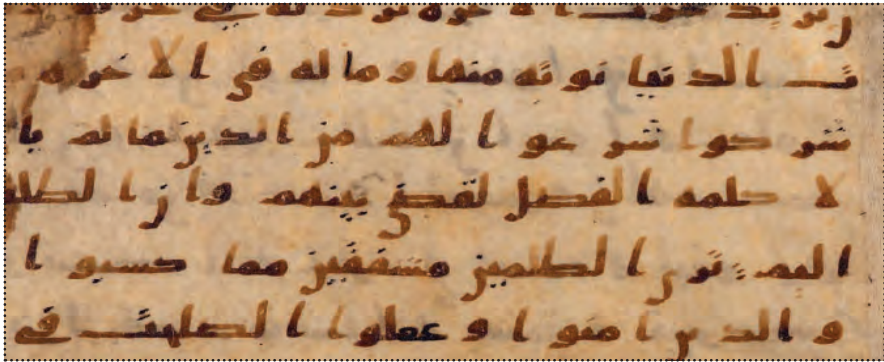 ن يريد حرث الاخره نزد له في حرثه
ث الدنيا نوته منها وما له في الاخره م
شركوا شرعوا لهم من الدين ما لم يا
لا كلمه الفصل لقضي بينهم وان الظلم
اليم ترى الظلمين مشفقين مما كسبوا
والذين امنوا وعملوا الصلحت في